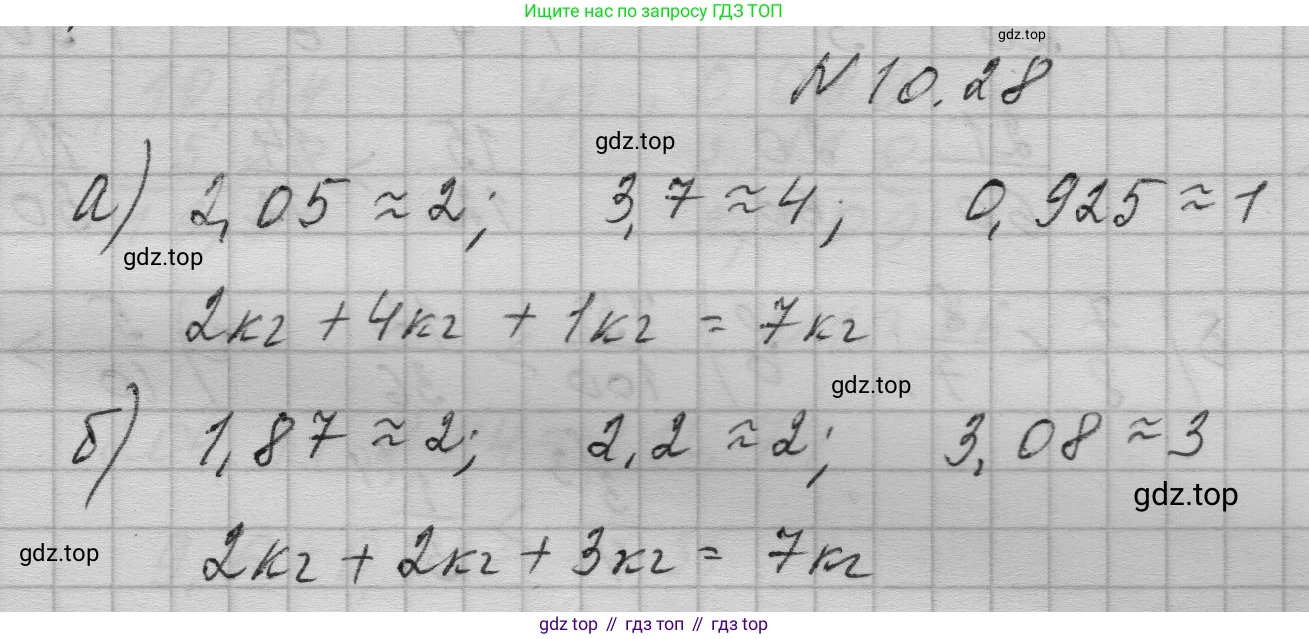 Ищите нас по запросу ГДЗ ТОП
gdz.top
N 10.28
gdz.top
а) 2,05 ≈ 2; 3,7 ≈ 4; 0,925 ≈ 1
gdz.top
2кг + 4кг + 1кг = 7кг
gdz.top
б) 1,87 ≈ 2; 2,2 ≈ 2; 3,08 ≈ 3
gdz.top
gdz.top
2кг + 2кг + 3кг = 7кг
gdz top // гдз топ // гдз top